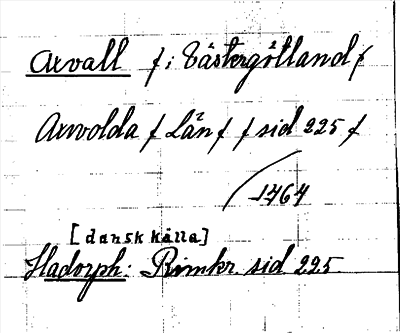 Arvall f. i Västergötland f
Arvolda f Län f f sid 225 f
1464
[dansk källa]
Hadorph: Rimkr. sid 225.